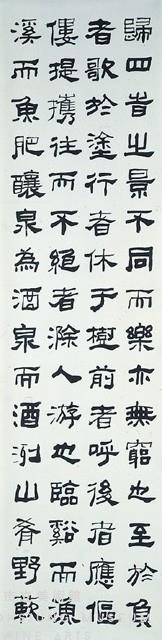 歸四旹之景不同而樂亦無窮也至於負
者歌於塗行者休于樹前者呼後者應傴
僂提攜往而不絕者滁人游也臨谿而漁
溪而魚肥釀泉為酒泉而酒洌山肴野蔌